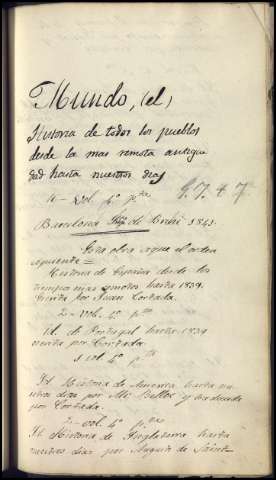 Mundo, (el)
Historia de todos los pueblos
desde la mas remota antigue
dad hasta nuestros dias
vol. 4º p.ta
Barcelona Imp. de Brusi 1841.
Esta obra sigue el orden
siguiente =
Historia de España desde los
tiempos mas remotos hasta 1839
escrita por Juan Cortada.
2 - vol. 4º p.ta
Id. de Portugal hasta 1839
escrita por Cortada.
1 vol. 4º p.ta
Id. Historia de America hasta nu
estros dias por Mr. Belloc y traducida
por Cortada.
2 - vol. 4º p.ta
Id. Historia de Inglaterra hasta
nuestros dias por Augusto de